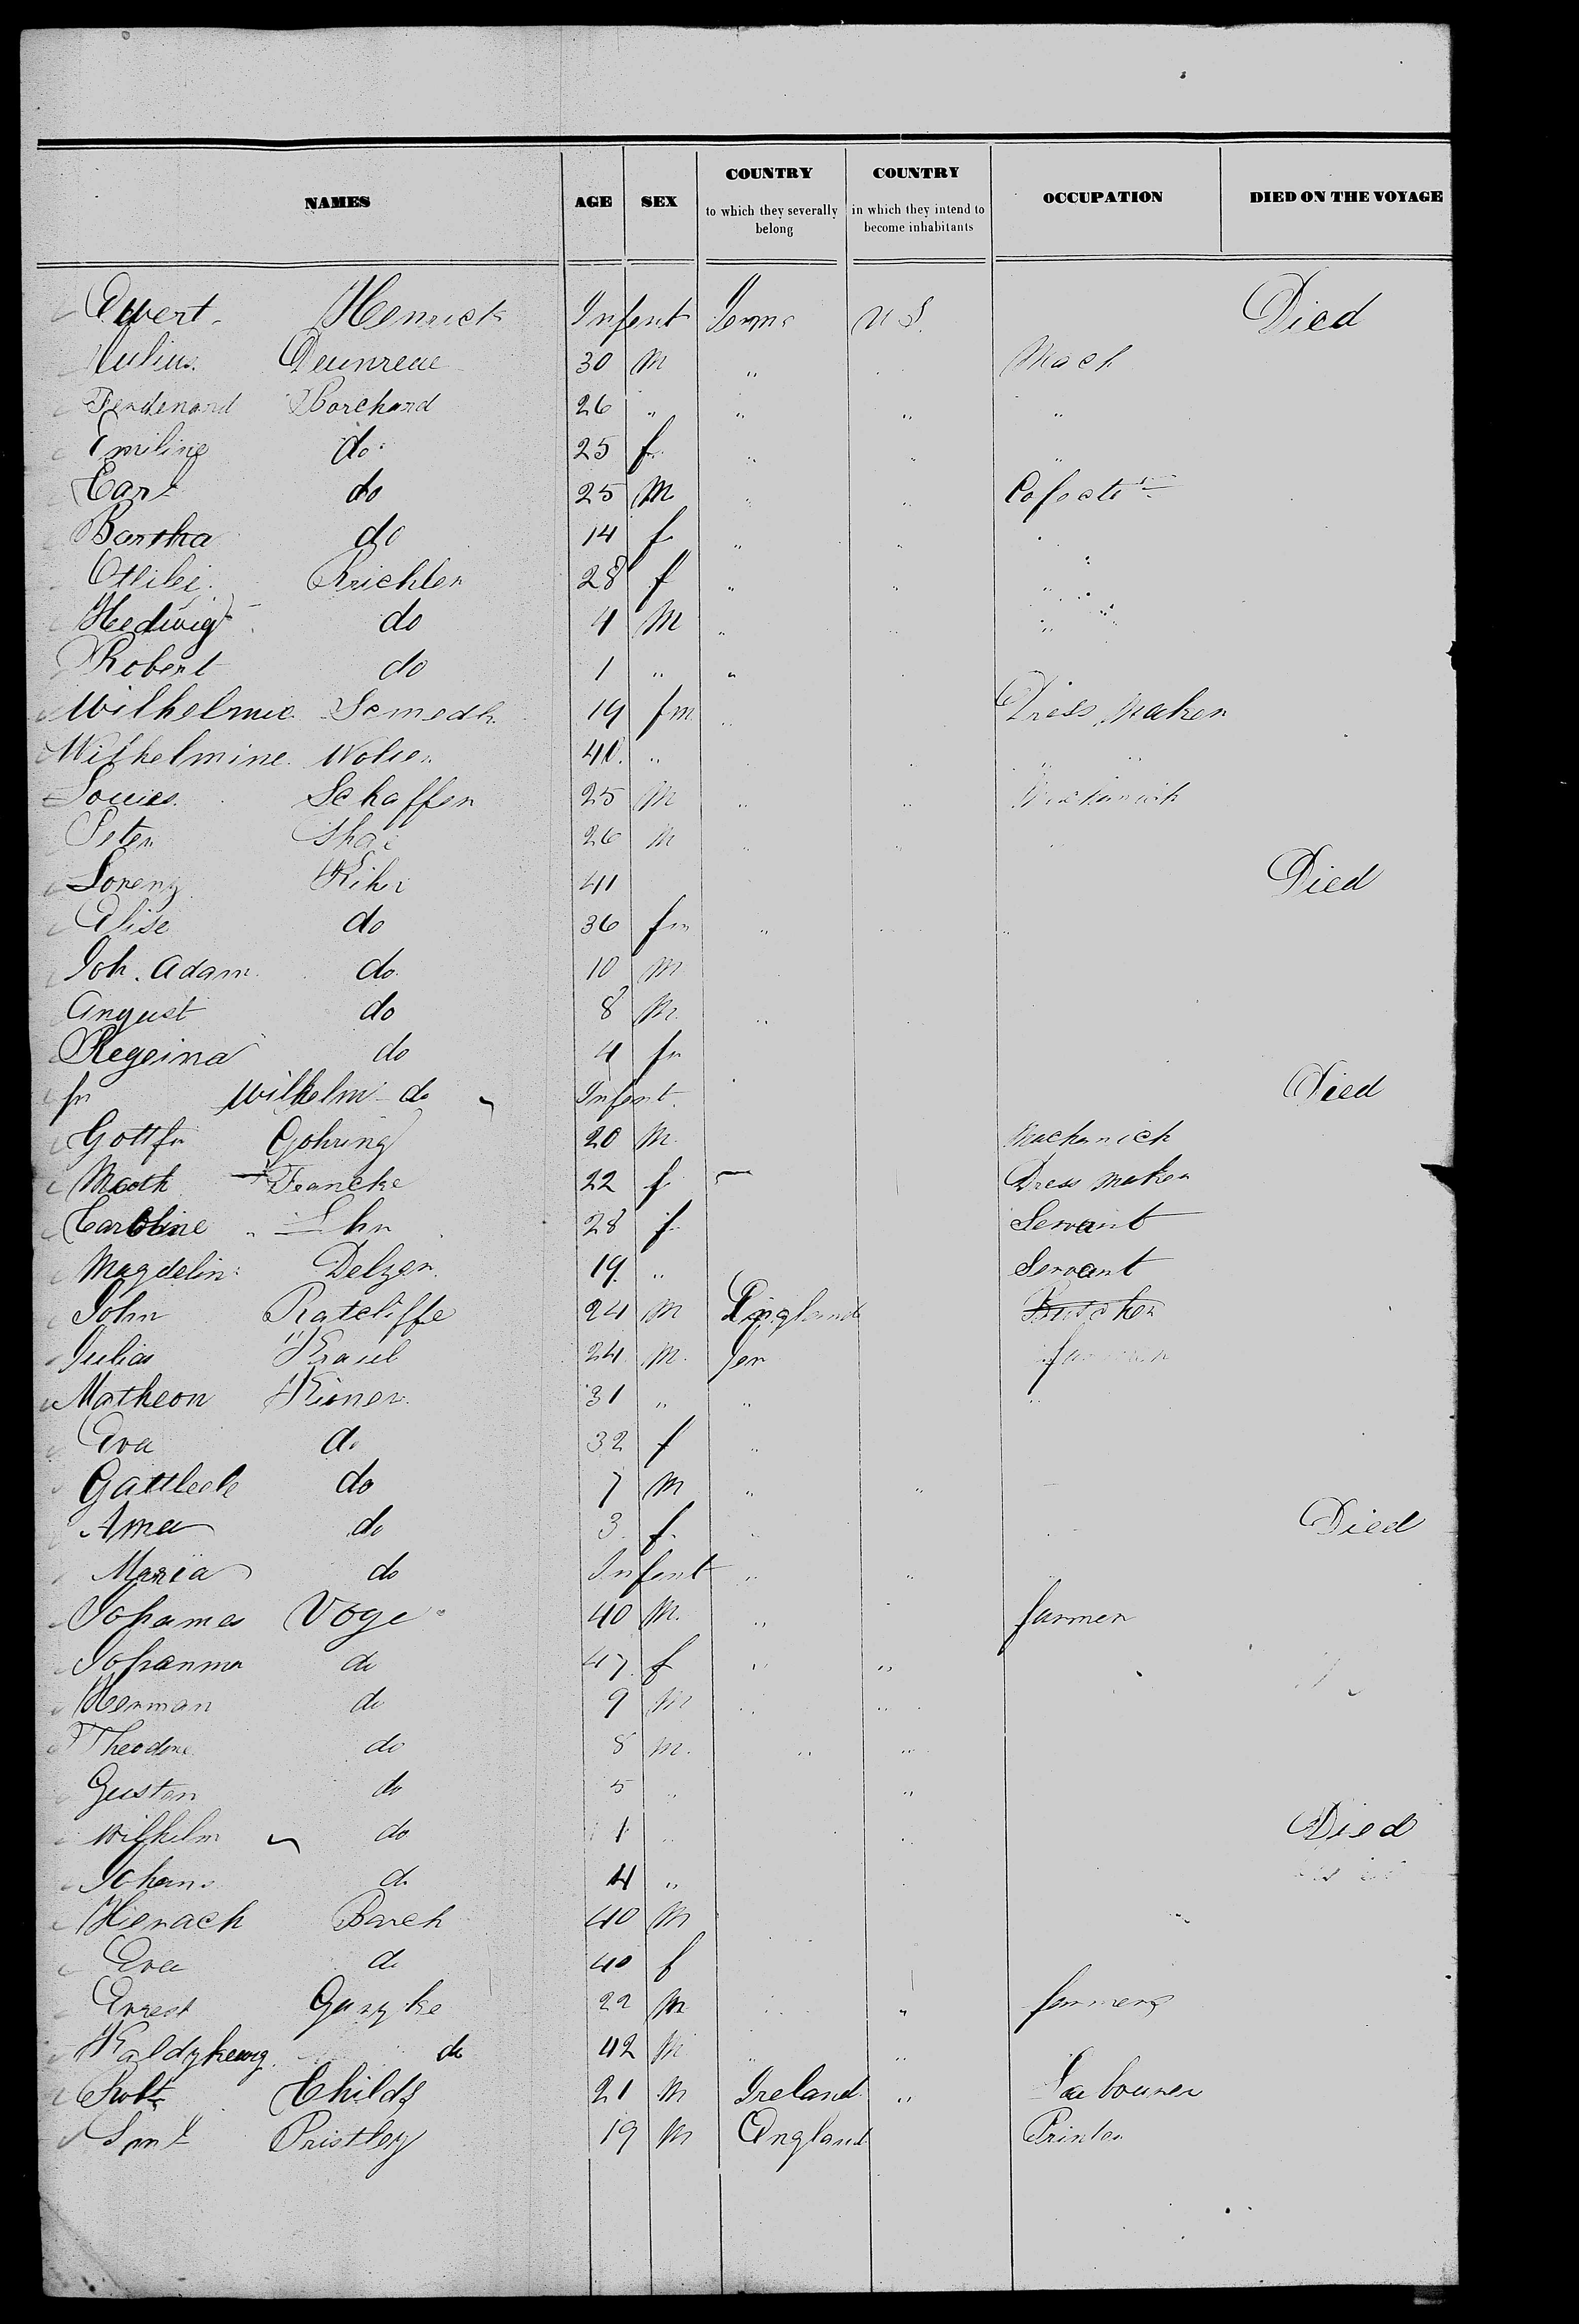 NAMES AGE SEX COUNTRY to which they severally belong COUNTRY in which they intend to become inhabitants OCCUPATION DIED ON THE VOYAGE
Ewert Henrick Infent Germ U S. Died
Julius 30 M " Mach
Ferdenand Borchand 26 " " " "
Emiline do 25 f " " "
Carl do 25 M " "
Bertha do 14 f " "
Otilie Richter 28 f " "
Hedwig do 4 M "
Robert do 1 " "
Wilhelmie 19 fm " Dress Maker
Wilhelmine 40 " " "
Louies Schaffer 25 M " " Mechanick
Peter 26 M " "
Lorenz 41 Died
Elise do 36 fm "
Joh. Adam do 10 M
August do 8 M "
Regeina do 4 fm
fm Wilhelm do Infent Died
Gottfr Gohring 20 M Mechanick
Marth Francke 22 f Dress maker
Caroline 28 f Servant
Magdelin Delzer 19 " Servant
John Ratcliffe 24 M England Butcher
Julias Kraul 24 M. Ger
Matheon Kiener 31 " " "
Eva do 32 f "
Gattleeb do 7 M " "
Anna do 3 f " Died
Maria do Infent " "
Johannes Voge 40 M. " farmer
Johanna do 47 f " "
Herman do 9 M " "
Theodore do 8 M. " "
Gustav do 5 " "
Wilhelm do 1 " " Died
Johann do 4 "
Hienach Barch 40 M
Eva do 40 f
Ernest 22 M " " farmers
do 42 M " "
Robt Childs 21 M Ireland " Labourer
Pristley 19 M England Printer